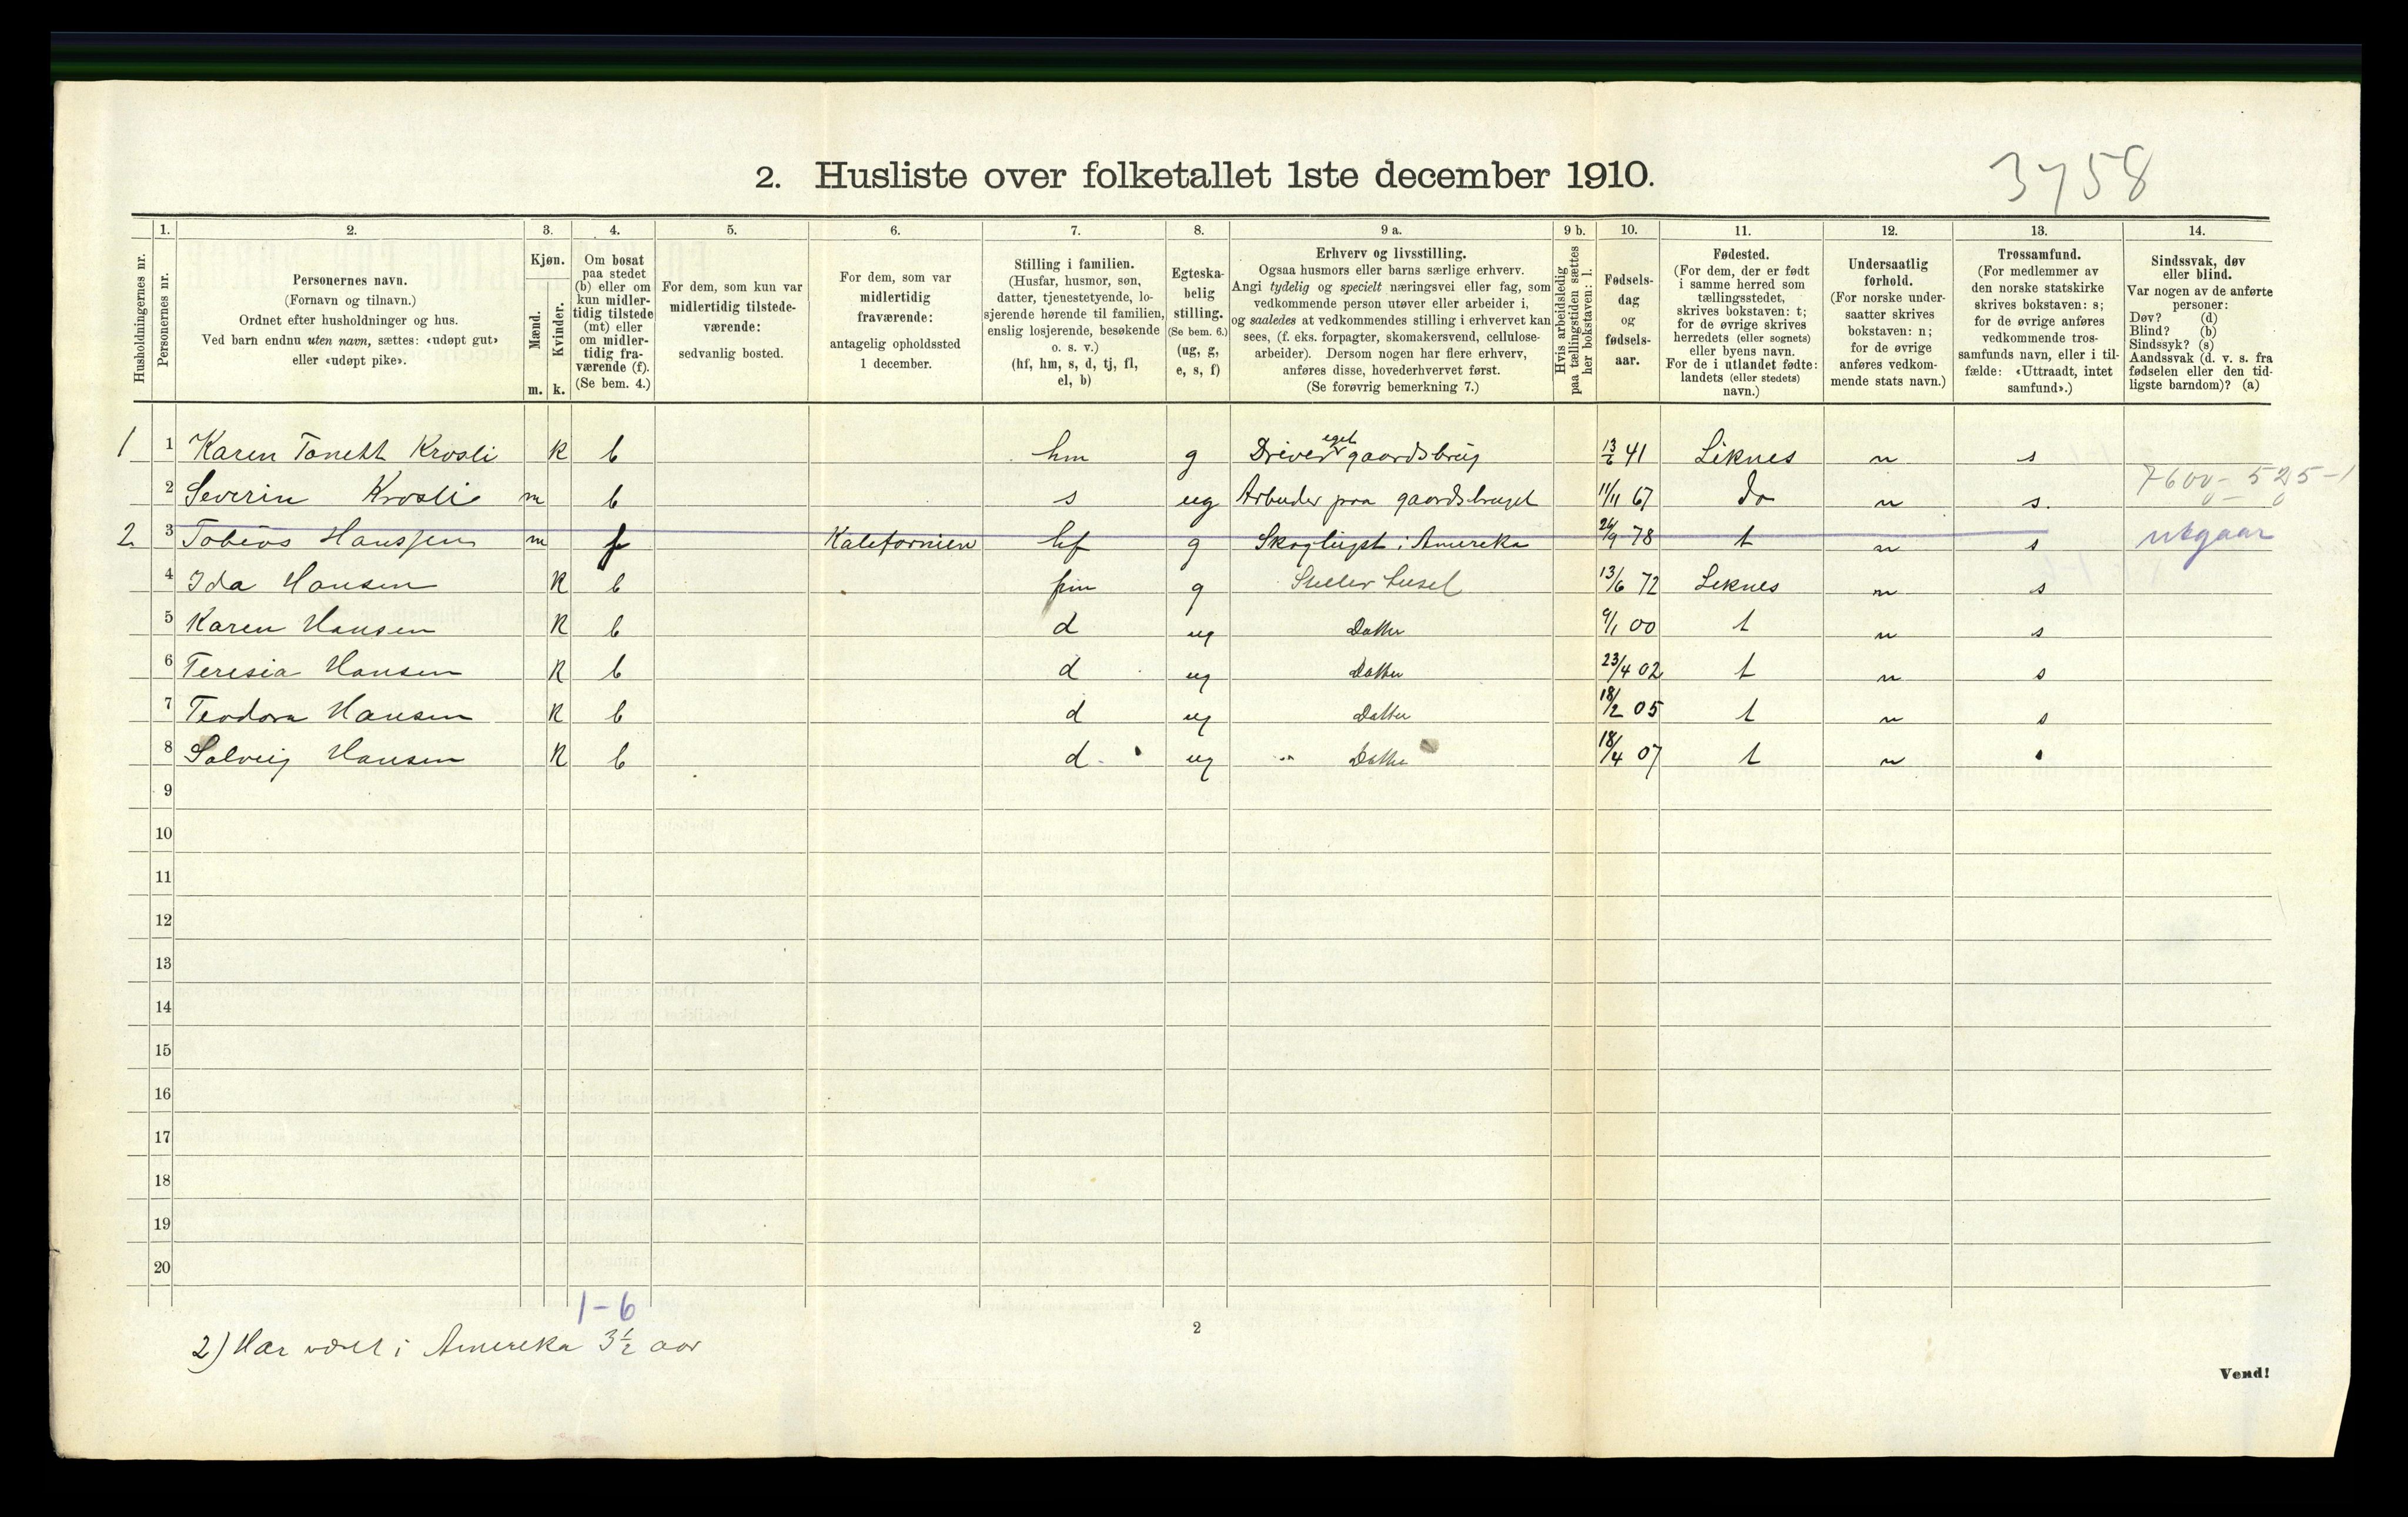 3758
2. Husliste over folketallet 1ste december 1910.
Husholdningernes nr.
1. Personernes nr.
2. Personernes navn. (Fornavn og tilnavn.) Ordnet efter husholdninger og hus. Ved barn endnu uten navn, sættes: «udøpt gut» eller «udøpt pike».
3. Kjøn. Mænd. m. Kvinder. k.
4. Om bosat paa stedet (b) eller om kun midlertidig tilstede (mt) eller om midlertidig fraværende (f). (Se bem. 4.)
5. For dem, som kun var midlertidig tilstedeværende: sedvanlig bosted.
6. For dem, som var midlertidig fraværende: antagelig opholdssted 1 december.
7. Stilling i familien. (Husfar, husmor, søn, datter, tjenestetyende, losjerende hørende til familien, enslig losjerende, besøkende o. s. v.) (hf, hm, s, d, tj, fl, el, b)
8. Egteskabelig stilling. (Se bem. 6.) (ug, g, e, s, f)
9 a. Erhverv og livsstilling. Ogsaa husmors eller barns særlige erhverv. Angi tydelig og specielt næringsvei eller fag, som vedkommende person utøver eller arbeider i, og saaledes at vedkommendes stilling i erhvervet kan sees, (f. eks. forpagter, skomakersvend, cellulosearbeider). Dersom nogen har flere erhverv, anføres disse, hovederhvervet først. (Se forøvrig bemerkning 7.)
9 b. Hvis arbeidsledig paa tællingstiden sættes her bokstaven: l.
10. Fødselsdag og fødselsaar.
11. Fødested. (For dem, der er født i samme herred som tællingsstedet, skrives bokstaven: t; for de øvrige skrives herredets (eller sognets) eller byens navn. For de i utlandet fødte: landets (eller stedets) navn.)
12. Undersaatlig forhold. (For norske undersaatter skrives bokstaven: n; for de øvrige anføres vedkommende stats navn.)
13. Trossamfund. (For medlemmer av den norske statskirke skrives bokstaven: s; for de øvrige anføres vedkommende trossamfunds navn, eller i tilfælde: «Uttraadt, intet samfund».)
14. Sindssvak, døv eller blind. Var nogen av de anførte personer: Døv? (d) Blind? (b) Sindssyk? (s) Aandssvak (d. v. s. fra fødselen eller den tidligste barndom)? (a)
1 1 Karen Tonett Krosli K b hm g Driver eget gaardsbrug 13/6 41 Liknes n s
2 Severin Krosli m b s ug Arbeider paa gaardsbruget 11/11 67 do n s. 7600 - 525 - 1
2 3 Tobias Hanssen m f Kalefornien hf g Skoghugst i Amereka 24/9 78 t n s utgaar
4 Ida Hansen K b hm g Steller huset 13/6 72 Liknes n s
5 Karen Hansen K b d ug Datter 9/1 00 t n s
6 Teresia Hansen K b d ug Datter 23/4 02 t n s
7 Teodora Hansen K b d ug Datter 18/2 05 t n s
8 Solveig Hansen K b d ug Datter 18/4 07 t n
9
10
11
12
13
14
15
16
17
18
19
20
1 - 6
2) Har været i Amereka 3 1/2 aar
2
Vend!